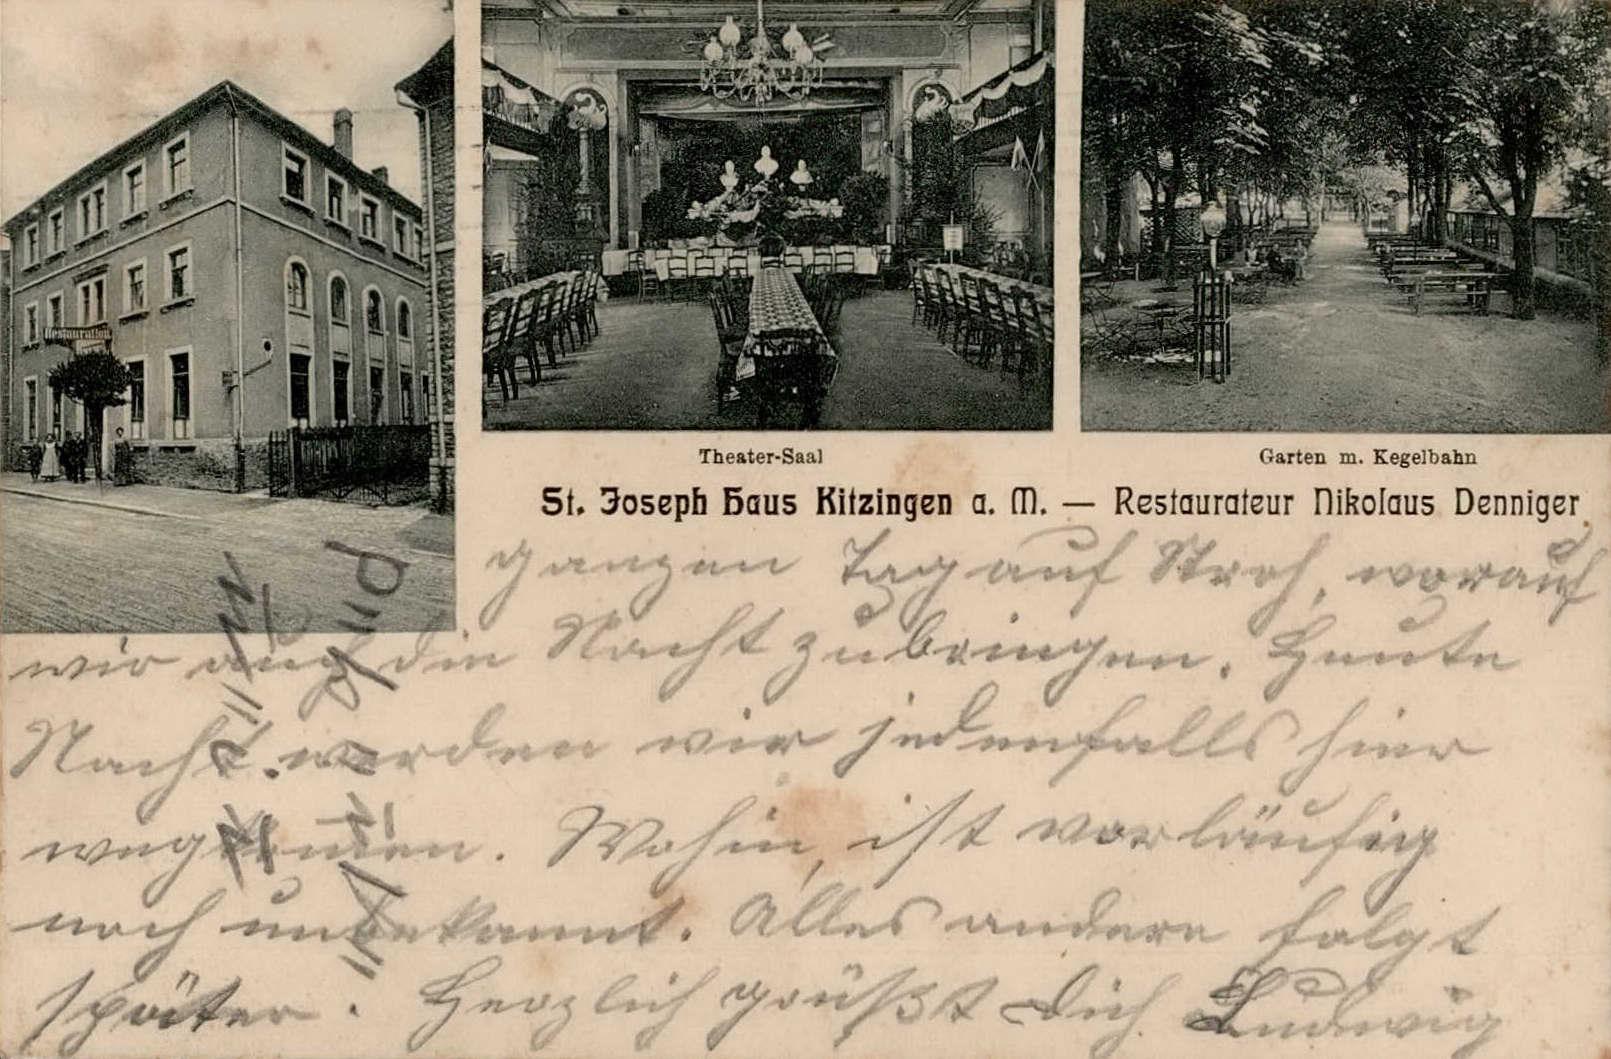 Restauration
Theater-Saal
Garten m. Kegelbahn
St. Joseph Haus Kitzingen a. M. — Restaurateur Nikolaus Denniger
ganzen Tag auf Stroh, worauf
wir auch die Nacht zubringen. Heute
Nacht werden wir jedenfalls hier
wegkommen. Wohin, ist vorläufig
noch unbekannt. Alles andere folgt
später. Herzlich grüßt Dich Ludwig